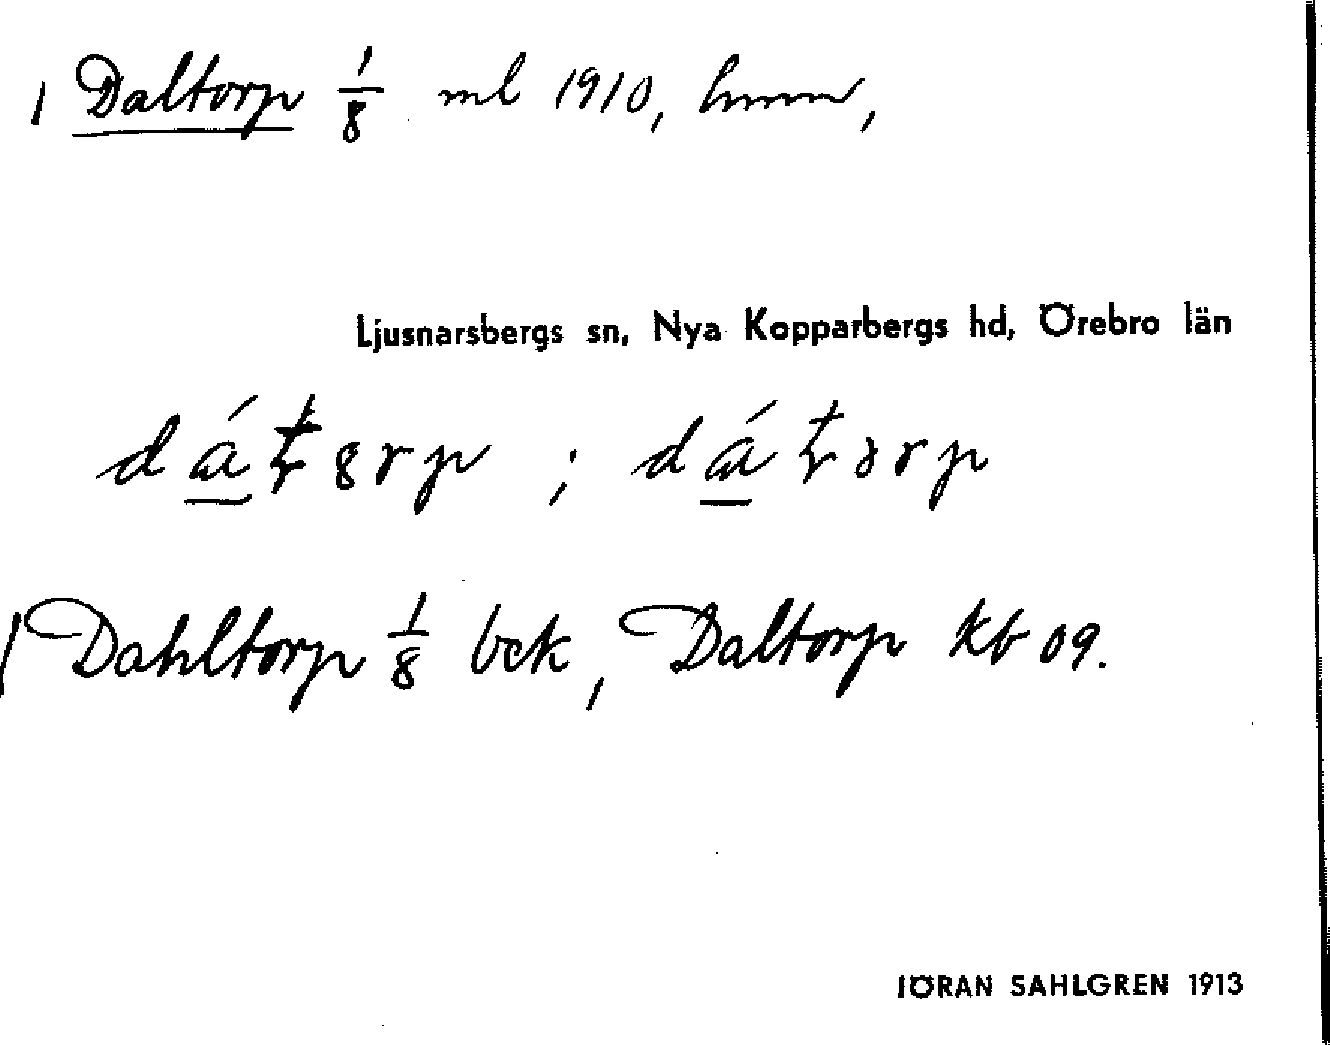 Daltorp 1/8 ml 1910, hmn,
Ljusnarsbergs sn, Nya Kopparbergs hd, Örebro län
Dahltorp 1/8 bek, Daltorp kb 09.
JÖRAN SAHLGREN 1913